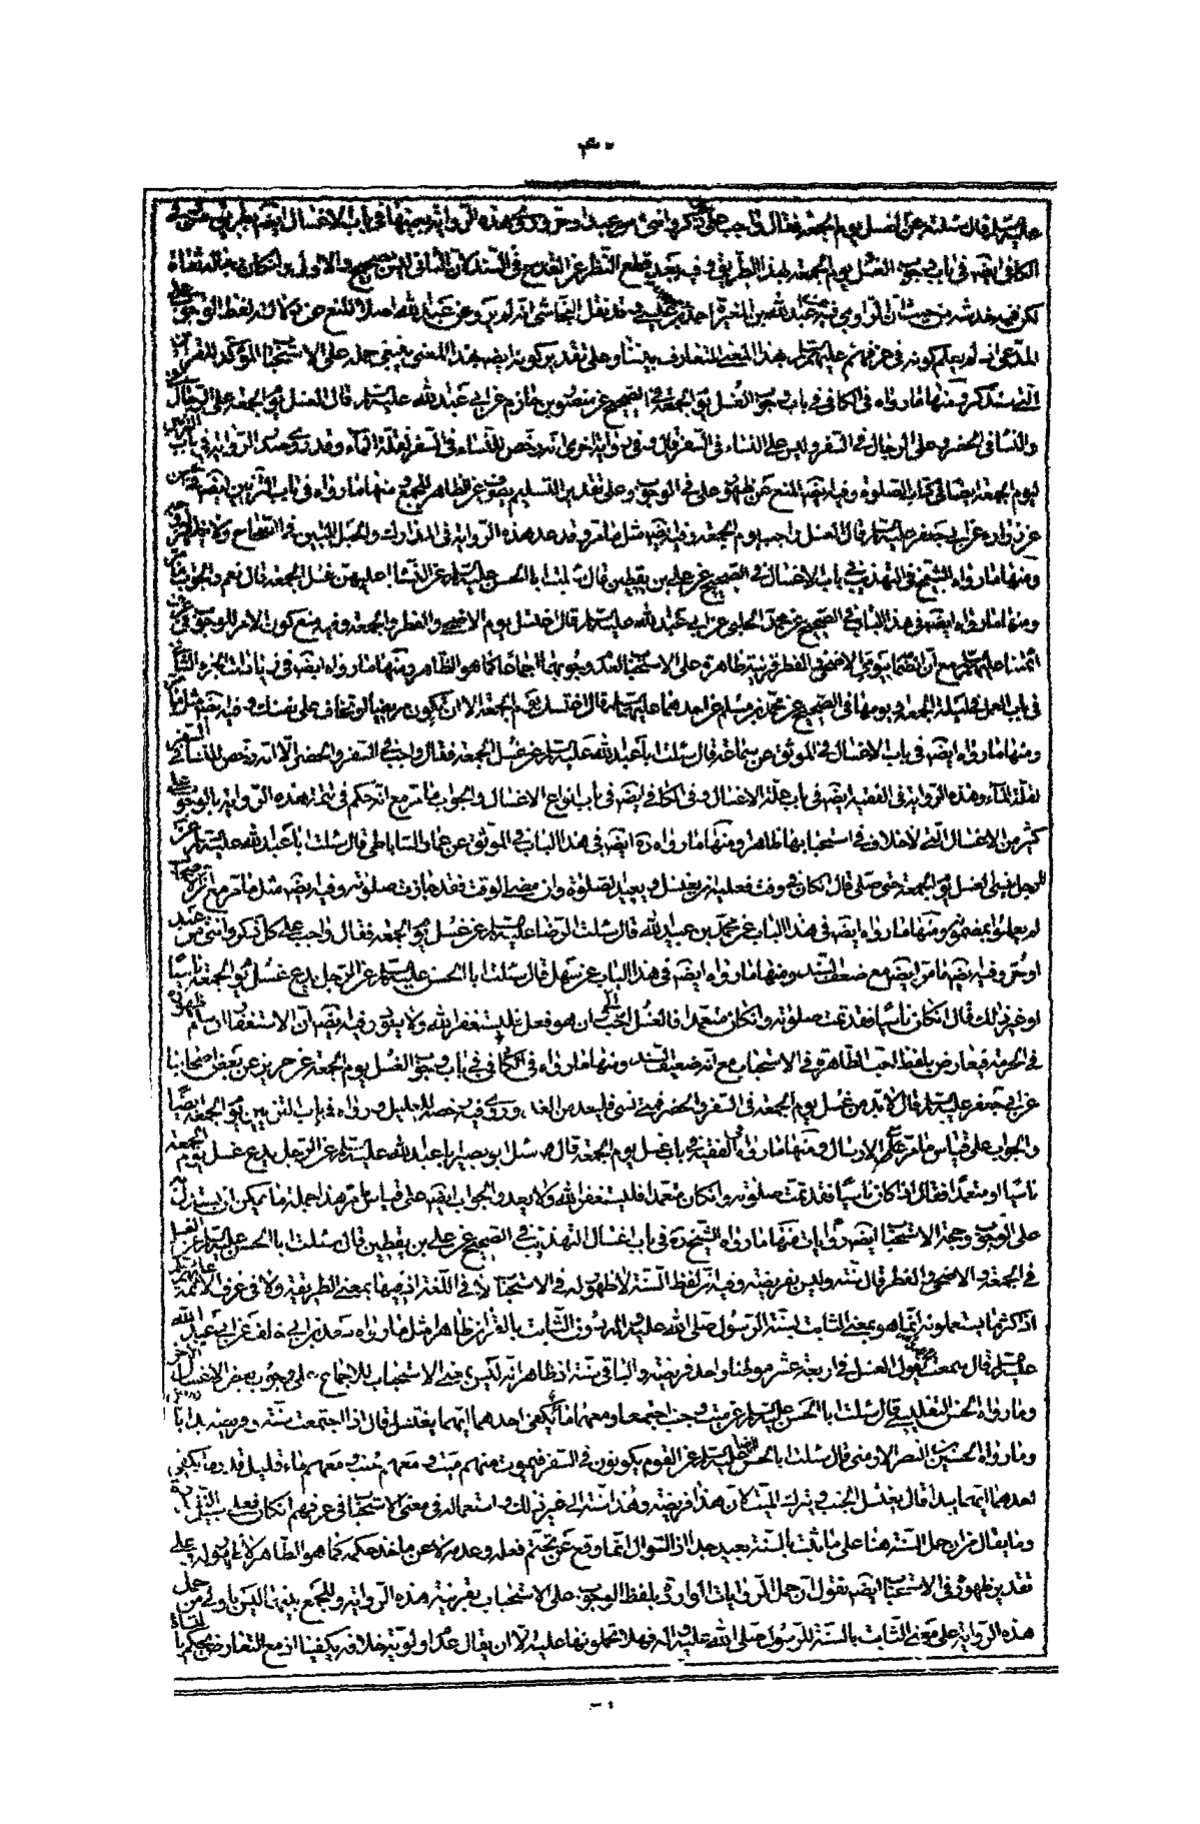 ۴۰
عليه السلام قال سئلته عن الغسل يوم الجمعة فقال واجب على كل ذكر وانثى من عبد او حر وذكر هذه الرواية بعينها في باب الاغسال ايضا بطريق
الكافي ايضا في باب وجوب الغسل يوم الجمعة بهذا الطريق وفيه بعد قطع النظر عن القدح في السند كان الثاني ليس بصحيح والاول وان كان رجاله ثقاة
لكن فيه خدشة من حيث ان الراوي فيه عبد الله بن المغيرة وقد نقل النجاشي انه لم يرو عن عبد الله اصلا للنعرض لفظ الوجوب على
المدعى انه لم يعلم كونه في عرفهم عليهم السلام هذا المعنى المتعارف بيننا وعلى تقدير كونه ايضا بهذا المعنى ينبغي حمله على الاستحباب المؤكد للقرائن
التي سنذكر ومنها ما رواه في الكافي في باب وجوب الغسل يوم الجمعة في الصحيح عن منصور بن حازم عن ابي عبد الله عليه السلام قال الغسل يوم الجمعة على الرجال
والنساء في الحضر وعلى الرجال في السفر وليس على النساء في السفر قال وفي رواية اخرى انه رخص للنساء في السفر لقلة الماء وقد ذكر هذه الرواية في باب التزيين
ليوم الجمعة ايضا في كتاب الصلوة وفيه ايضا المنع عن ظهور على في الوجوب وعلى تقدير التسليم يصرف عن الظاهر للجمع ومنها ما رواه في باب التزيين ايضا
عن زرارة عن ابي جعفر عليه السلام قال الغسل واجب يوم الجمعة وفيه ايضا مثل ما مر وقد عد هذه الرواية في المدارك والحبل المتين من الصحاح ولا
ومنها ما رواه الشيخ في التهذيب في باب الاغسال في الصحيح عن علي بن يقطين قال سئلت ابا الحسن عليه السلام عن النساء اعليهن غسل الجمعة قال نعم والجواب
ومنها ما رواه ايضا في هذا الباب في الصحيح عن محمد الحلبي عن ابي عبد الله عليه السلام قال اغتسل يوم الاضحى والفطر والجمعة وفيه منع كون الامر للوجوب في
ائمتنا عليهم السلام مع ان انضمام يومي الاضحى والفطر قرينة ظاهرة على الاستحباب لعدم وجوبهما اجماعا كما هو الظاهر ومنها ما رواه ايضا في زيادات الجزء الثاني
في باب العمل في ليلة الجمعة ويومها في الصحيح عن محمد بن مسلم عن احدهما عليهما السلام قال اغتسل يوم الجمعة الا ان تكون مريضا او تخاف على نفسك وفيه ايضا مثل ما
ومنها ما رواه ايضا في باب الاغسال في الموثق عن سماعة قال سئلت ابا عبد الله عليه السلام عن غسل الجمعة فقال واجب في السفر والحضر الا انه رخص للنساء في السفر
لقلة الماء وهذه الرواية في الفقيه ايضا في باب علة الاغسال وفي الكافي ايضا في باب انواع الاغسال والجواب ما مر مع انه حكم في تتمة هذه الرواية بالوجوب على
كثير من الاغسال التي لا خلاف في استحبابها ظاهرا ومنها ما رواه ره ايضا في هذا الباب في الموثق عن عمار الساباطي قال سئلت ابا عبد الله عليه السلام عن
الرجل ينسى الغسل يوم الجمعة حتى صلى قال ان كان في وقت فعليه ان يغتسل ويعيد الصلوة وان مضى الوقت فقد جازت صلوته وفيه ايضا مثل ما مر مع
لم يعملوا بمضمونه ومنها ما رواه ايضا في هذا الباب عن محمد بن عبيد الله قال سئلت الرضا عليه السلام عن غسل يوم الجمعة فقال واجب على كل ذكر وانثى من عبد
او حر وفيه ايضا ما مر ايضا مع ضعف السند ومنها ما رواه ايضا في هذا الباب عن سهل قال سئلت ابا الحسن عليه السلام عن الرجل يدع غسل يوم الجمعة ناسيا
او غير ذلك قال ان كان ناسيا فقد تمت صلوته وان كان متعمدا فالغسل احب الي ان هو فعل فليستغفر الله ولا يعود وفيه ايضا ان الاستغفار ان سلم ظهوره
في الحرمة فيعارض بلفظ احب الظاهرة في الاستحباب مع انه ضعيف السند ومنها ما رواه في الكافي في باب وجوب الغسل يوم الجمعة عن حريز عن بعض اصحابنا
عن ابي جعفر عليه السلام قال لا بد من غسل يوم الجمعة في السفر والحضر فمن نسي فليعد من الغد وروي فيه رخصة للعليل ورواه في باب التزيين يوم الجمعة ايضا
والجواب على قياس ما مر على الارسال ومنها ما رواه في الفقيه في باب غسل يوم الجمعة قال سئل ابو بصير ابا عبد الله عليه السلام عن الرجل يدع غسل يوم الجمعة
ناسيا او متعمدا فقال اذا كان ناسيا فقد تمت صلوته وان كان متعمدا فليستغفر الله ولا يعد والجواب ايضا على قياس ما مر هذا جملة ما يمكن ان يستدل به
على الوجوب وحجة الاستحباب ايضا روايات منها ما رواه الشيخ ره في باب اغسال التهذيب في الصحيح عن علي بن يقطين قال سئلت ابا الحسن عليه السلام عن الغسل
في الجمعة والاضحى والفطر قال سنة وليس بفريضة وفيه ان لفظ السنة لا ظهور له في الاستحباب لا في اللغة اذ فيها بمعنى الطريقة ولا في عرف الائمة عليهم السلام
اذ اكثر ما يستعملونه انما هو بمعنى الثابت بسنة الرسول صلى الله عليه واله دون الثابت بالقران ظاهرا مثل ما رواه سعد بن ابي خلف عن ابي عبد الله
عليه السلام قال سمعته يقول الغسل في اربعة عشر موطنا واحد فريضة والباقي سنة اذ ظاهر انه ليس بمعنى الاستحباب للاجماع على وجوب بعض الاغسال الاخر
وما رواه الحسن التفليسي قال سئلت ابا الحسن عليه السلام عن ميت وجنب اجتمعا ومعهما ماء يكفي احدهما ايهما يغتسل قال اذا اجتمعت سنة وفريضة بدا بالفرض
وما رواه الحسين بن النضر الارمني قال سئلت ابا الحسن الرضا عليه السلام عن القوم يكونون في السفر فيموت منهم ميت ومعهم جنب ومعهم ماء قليل قدر ما يكفي
احدهما ايهما يبدا قال يغتسل الجنب ويترك الميت لان هذا فريضة وهذا سنة الى غير ذلك واستعماله في معنى الاستحباب في عرفهم ان كان فعلى سبيل القلة
وما يقال من ان حمل السنة هنا على ما ثبت بالسنة بعيد جدا اذ السؤال انما وقع عن تحتم فعله وعدمه لا عن ماخذ حكمه كما هو الظاهر لا في قوله على
تقدير ظهوره في الاستحباب ايضا نقول ان حمل الروايات الواردة بلفظ الوجوب على الاستحباب بقرينة هذه الرواية وللجمع بينهما ليس باولى من حمل
هذه الرواية على معنى الثابت بالسنة للرسول صلى الله عليه واله فهلا تحملونها عليه الا ان يقال عدم اولويته خلافه يكفينا اذ مع التعارض يحكم بالتساقط